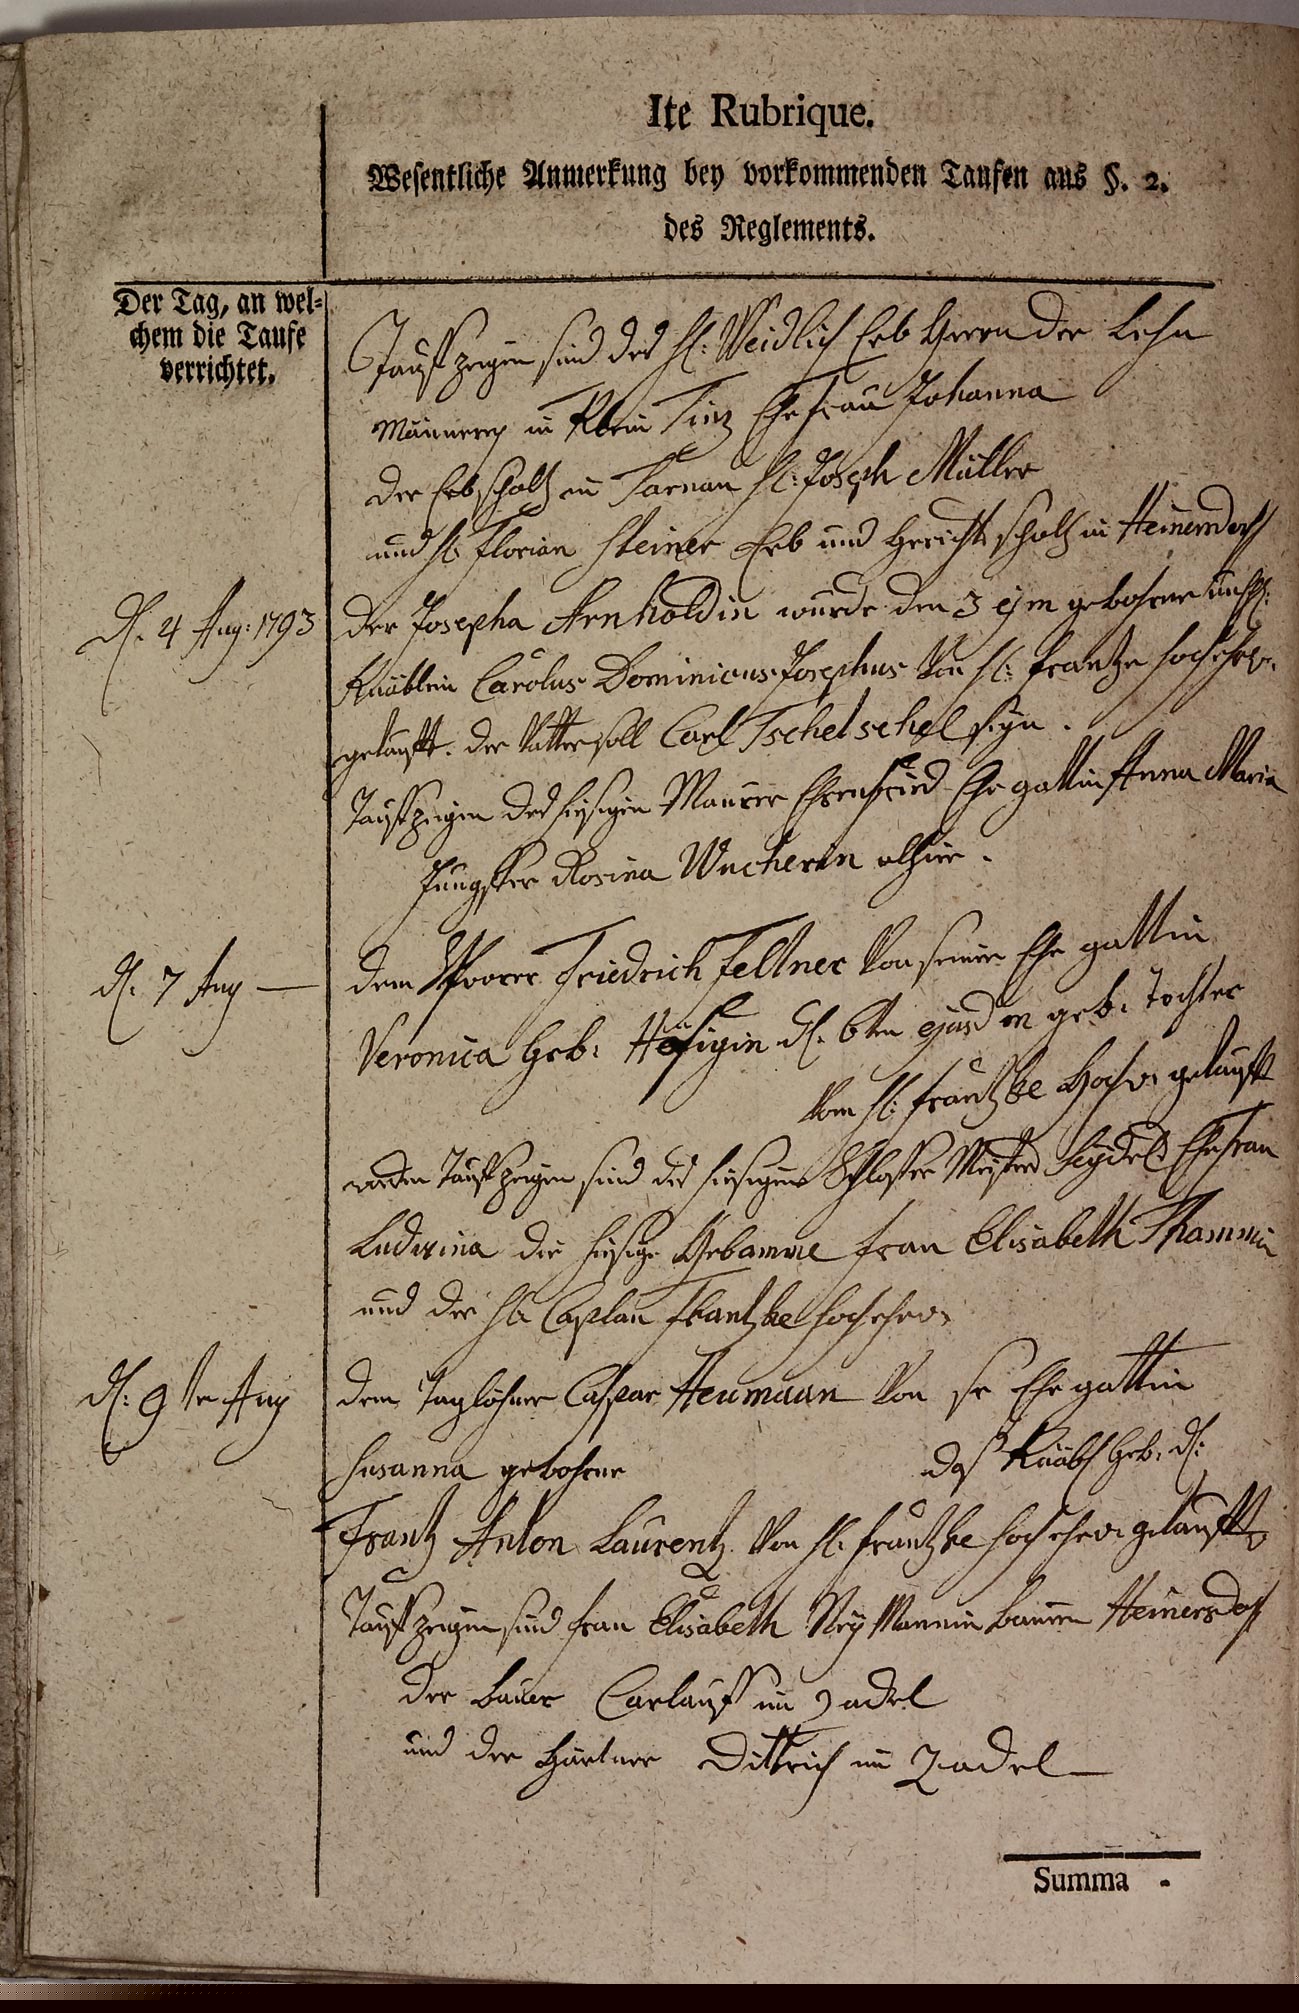 Ite Rubrique.
Wesentliche Anmerkung bey vorkommenden Taufen aus §. 2.
des Reglements.
Der Tag, an wel-
chem die Taufe
verrichtet.
Tauffzeigen sind des H: Weidlich Erb Herrn der Lehn
Männerey in Klein Tinz Ehefrau Johanna
der Erbscholtz in Tarnau H: Joseph Müller
und H: Florian Steiner Erb und Gericht scholtz in Heinersdorff
d. 4 Aug: 1793
der Josepha Arnholdin wurde den 3 ejm gebohrne
Knäblein Carolus Dominicus Josephus Von H: Frantzke hochehrw.
getaufft. der Vatter soll Carl Tschetschel seyn.
Tauffzeigen des hiesigen Maurer Ehrenfried Ehegattin Anna Maria
Jungfer Rosina Wucherin alhier.
d. 7 Aug
dem Friedrich Feltner Von seiner Ehegattin
Veronica Geb: d. 6ten ejusd m geb: Tochter
Vom H: Frantzke Hochw. getaufft
worden Tauffzeigen sind des hiesigen Schlosser Meisters Seydels Ehefrau
Ludwina die hiesige Hebamme frau Elisabeth Thammin
und der H: Caplan Frantzke hochehrw.
d: 9te Aug
dem Taglöhner Caspar Heumann Von sr Ehegattin
Susanna gebohrne daß Knäbl Geb. d:
Frantz Anton Laurentz Von H: Frantzke hochehrw. getaufft
Tauffzeigen sind frau Elisabeth Neymannin Heinersdorff
der bauer Carlauff in Zadel
und der Gärtner Dittrich in Zadel
Summa -